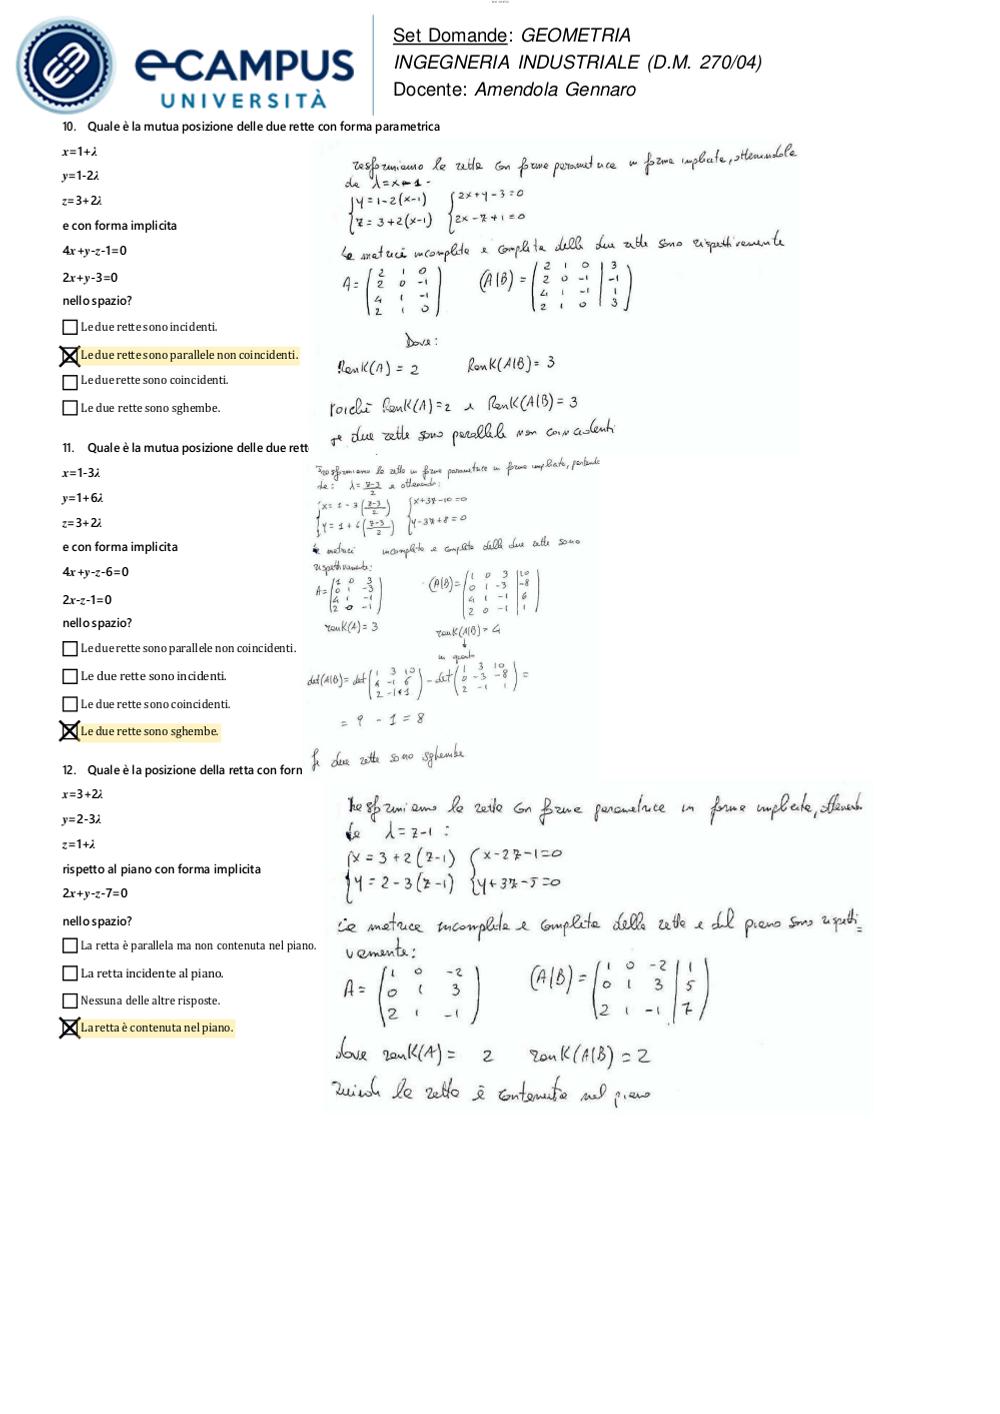 e-CAMPUS
UNIVERSITÀ
Set Domande: GEOMETRIA
INGEGNERIA INDUSTRIALE (D.M. 270/04)
Docente: Amendola Gennaro
10. Quale è la mutua posizione delle due rette con forma parametrica
x=1+λ
y=1-2λ
z=3+2λ
e con forma implicita
4x+y-z-1=0
2x+y-3=0
nello spazio?
Le due rette sono incidenti.
Le due rette sono parallele non coincidenti.
Le due rette sono coincidenti.
Le due rette sono sghembe.
Trasformiamo le rette con forma parametrica in forma implicita, ottenendola
da λ=x-1.
y=1-2(x-1) 2x+y-3=0
z=3+2(x-1) 2x-z+1=0
Le matrici incompleta e completa delle due rette sono rispettivamente
A= (A|B)=
2 1 0 2 1 0 | 3
2 0 -1 2 0 -1 | -1
4 1 -1 4 1 -1 | 1
2 1 0 2 1 0 | 3
Dove:
Rank(A) = 2 Rank(A|B) = 3
Poiché Rank(A)=2 e Rank(A|B)=3
le due rette sono parallele non coincidenti
11. Quale è la mutua posizione delle due rett
x=1-3λ
y=1+6λ
z=3+2λ
e con forma implicita
4x+y-z-6=0
2x-z-1=0
nello spazio?
Le due rette sono parallele non coincidenti.
Le due rette sono incidenti.
Le due rette sono coincidenti.
Le due rette sono sghembe.
Trasformiamo le rette in forma parametrica in forma implicita, partendo
da: λ= z-3/2 e ottenendo:
x= 1-3(z-3/2) x+3z-10=0
y= 1+6(z-3/2) y-3z+8=0
Le matrici incompleta e completa delle due rette sono
rispettivamente:
A= (A|B)=
1 0 3 1 0 3 | 10
0 1 -3 0 1 -3 | -8
4 1 -1 4 1 -1 | 6
2 0 -1 2 0 -1 | 1
rank(A)= 3 rank(A|B)= 4
in quanto
det(A|B)= det - det =
1 3 10 1 3 10
4 -1 6 0 -3 -8
2 -1 1 2 -1 1
= 9 - 1 = 8
Le due rette sono sghembe
12. Quale è la posizione della retta con forn
x=3+2λ
y=2-3λ
z=1+λ
rispetto al piano con forma implicita
2x+y-z-7=0
nello spazio?
La retta è parallela ma non contenuta nel piano.
La retta incidente al piano.
Nessuna delle altre risposte.
La retta è contenuta nel piano.
Trasformiamo la retta con forma parametrica in forma implicita, ottenuta
da λ=z-1:
x=3+2(z-1) x-2z-1=0
y=2-3(z-1) y+3z-5=0
Le matrice incompleta e completa della retta e del piano sono rispetti=
vamente:
A= (A|B)=
1 0 -2 1 0 -2 | 1
0 1 3 0 1 3 | 5
2 1 -1 2 1 -1 | 7
dove rank(A)= 2 rank(A|B)=2
quindi la retta è contenuta nel piano